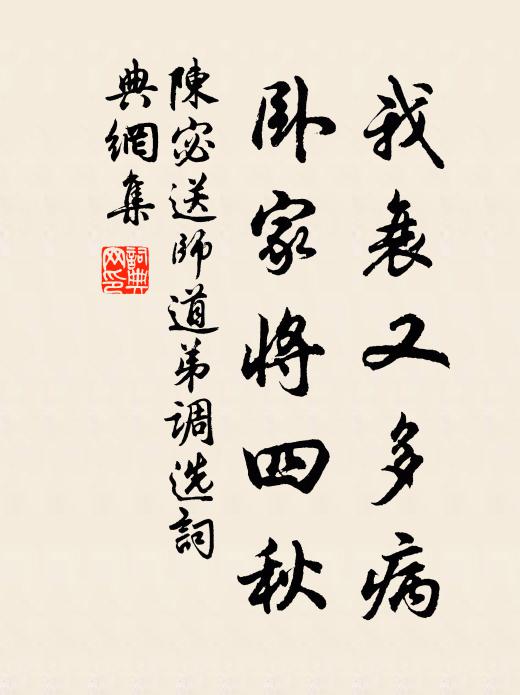 我衰又多病
卧家将四秋
陳宓送師道弟調选詞
典網集
詞典網印